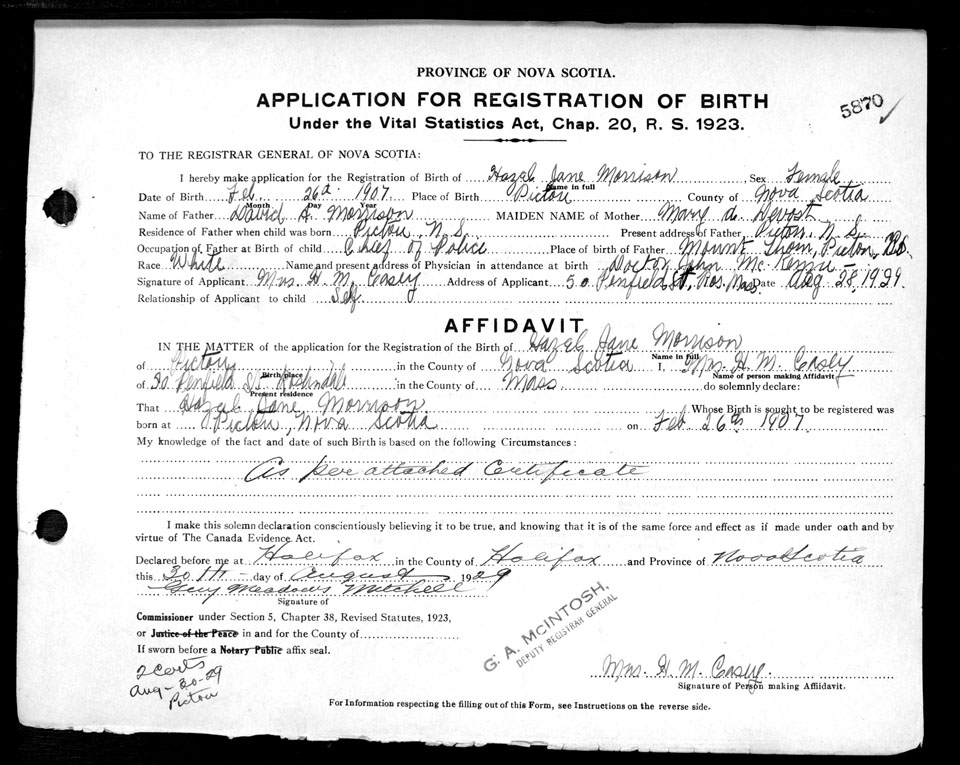 PROVINCE OF NOVA SCOTIA.
APPLICATION FOR REGISTRATION OF BIRTH
5870
Under the Vital Statistics Act, Chap. 20, R. S. 1923.
TO THE REGISTRAR GENERAL OF NOVA SCOTIA:
I hereby make application for the Registration of Birth of Hazel Jane Morrison Sex Female
Name in full
Date of Birth Feb. 26th 1907. Place of Birth Pictou County of Nova Scotia
Month Day Year
Name of Father David A. Morrison MAIDEN NAME of Mother Mary A.
Residence of Father when child was born Pictou, N. S. Present address of Father Pictou N. S.
Occupation of Father at Birth of child Chief of Police Place of birth of Father Mount Thom, Pictou,
Race White Name and present address of Physician in attendance at birth Doctor John
Signature of Applicant Mrs. H. M. Casey Address of Applicant 50 Penfield St, Ros. Mass. Date Aug 28, 1929.
Relationship of Applicant to child Self
AFFIDAVIT
IN THE MATTER of the application for the Registration of the Birth of Hazel Jane Morrison
Name in full
of Pictou in the County of Nova Scotia I, Mrs. H. M. Casey
Birth place Name of person making Affidavit
of 50 Penfield St. in the County of Mass. do solemnly declare:
Present residence
That Hazel Jane Morrison Whose Birth is sought to be registered was
born at Pictou, Nova Scotia on Feb 26th 1907.
My knowledge of the fact and date of such Birth is based on the following Circumstances:
As per attached Certificate
I make this solemn declaration conscientiously believing it to be true, and knowing that it is of the same force and effect as if made under oath and by
virtue of The Canada Evidence Act.
Declared before me at Halifax in the County of Halifax and Province of Nova Scotia
this 30th day of August 1929
Guy Meadows Mitchell
Signature of
Commissioner under Section 5, Chapter 38, Revised Statutes, 1923,
or Justice of the Peace in and for the County of
If sworn before a Notary Public affix seal.
G. A. McINTOSH.
DEPUTY REGISTRAR GENERAL
2 Certs
Aug-30-29
Pictou
Mrs. H. M. Casey.
Signature of Person making Affidavit.
For Information respecting the filling out of this Form, see Instructions on the reverse side.